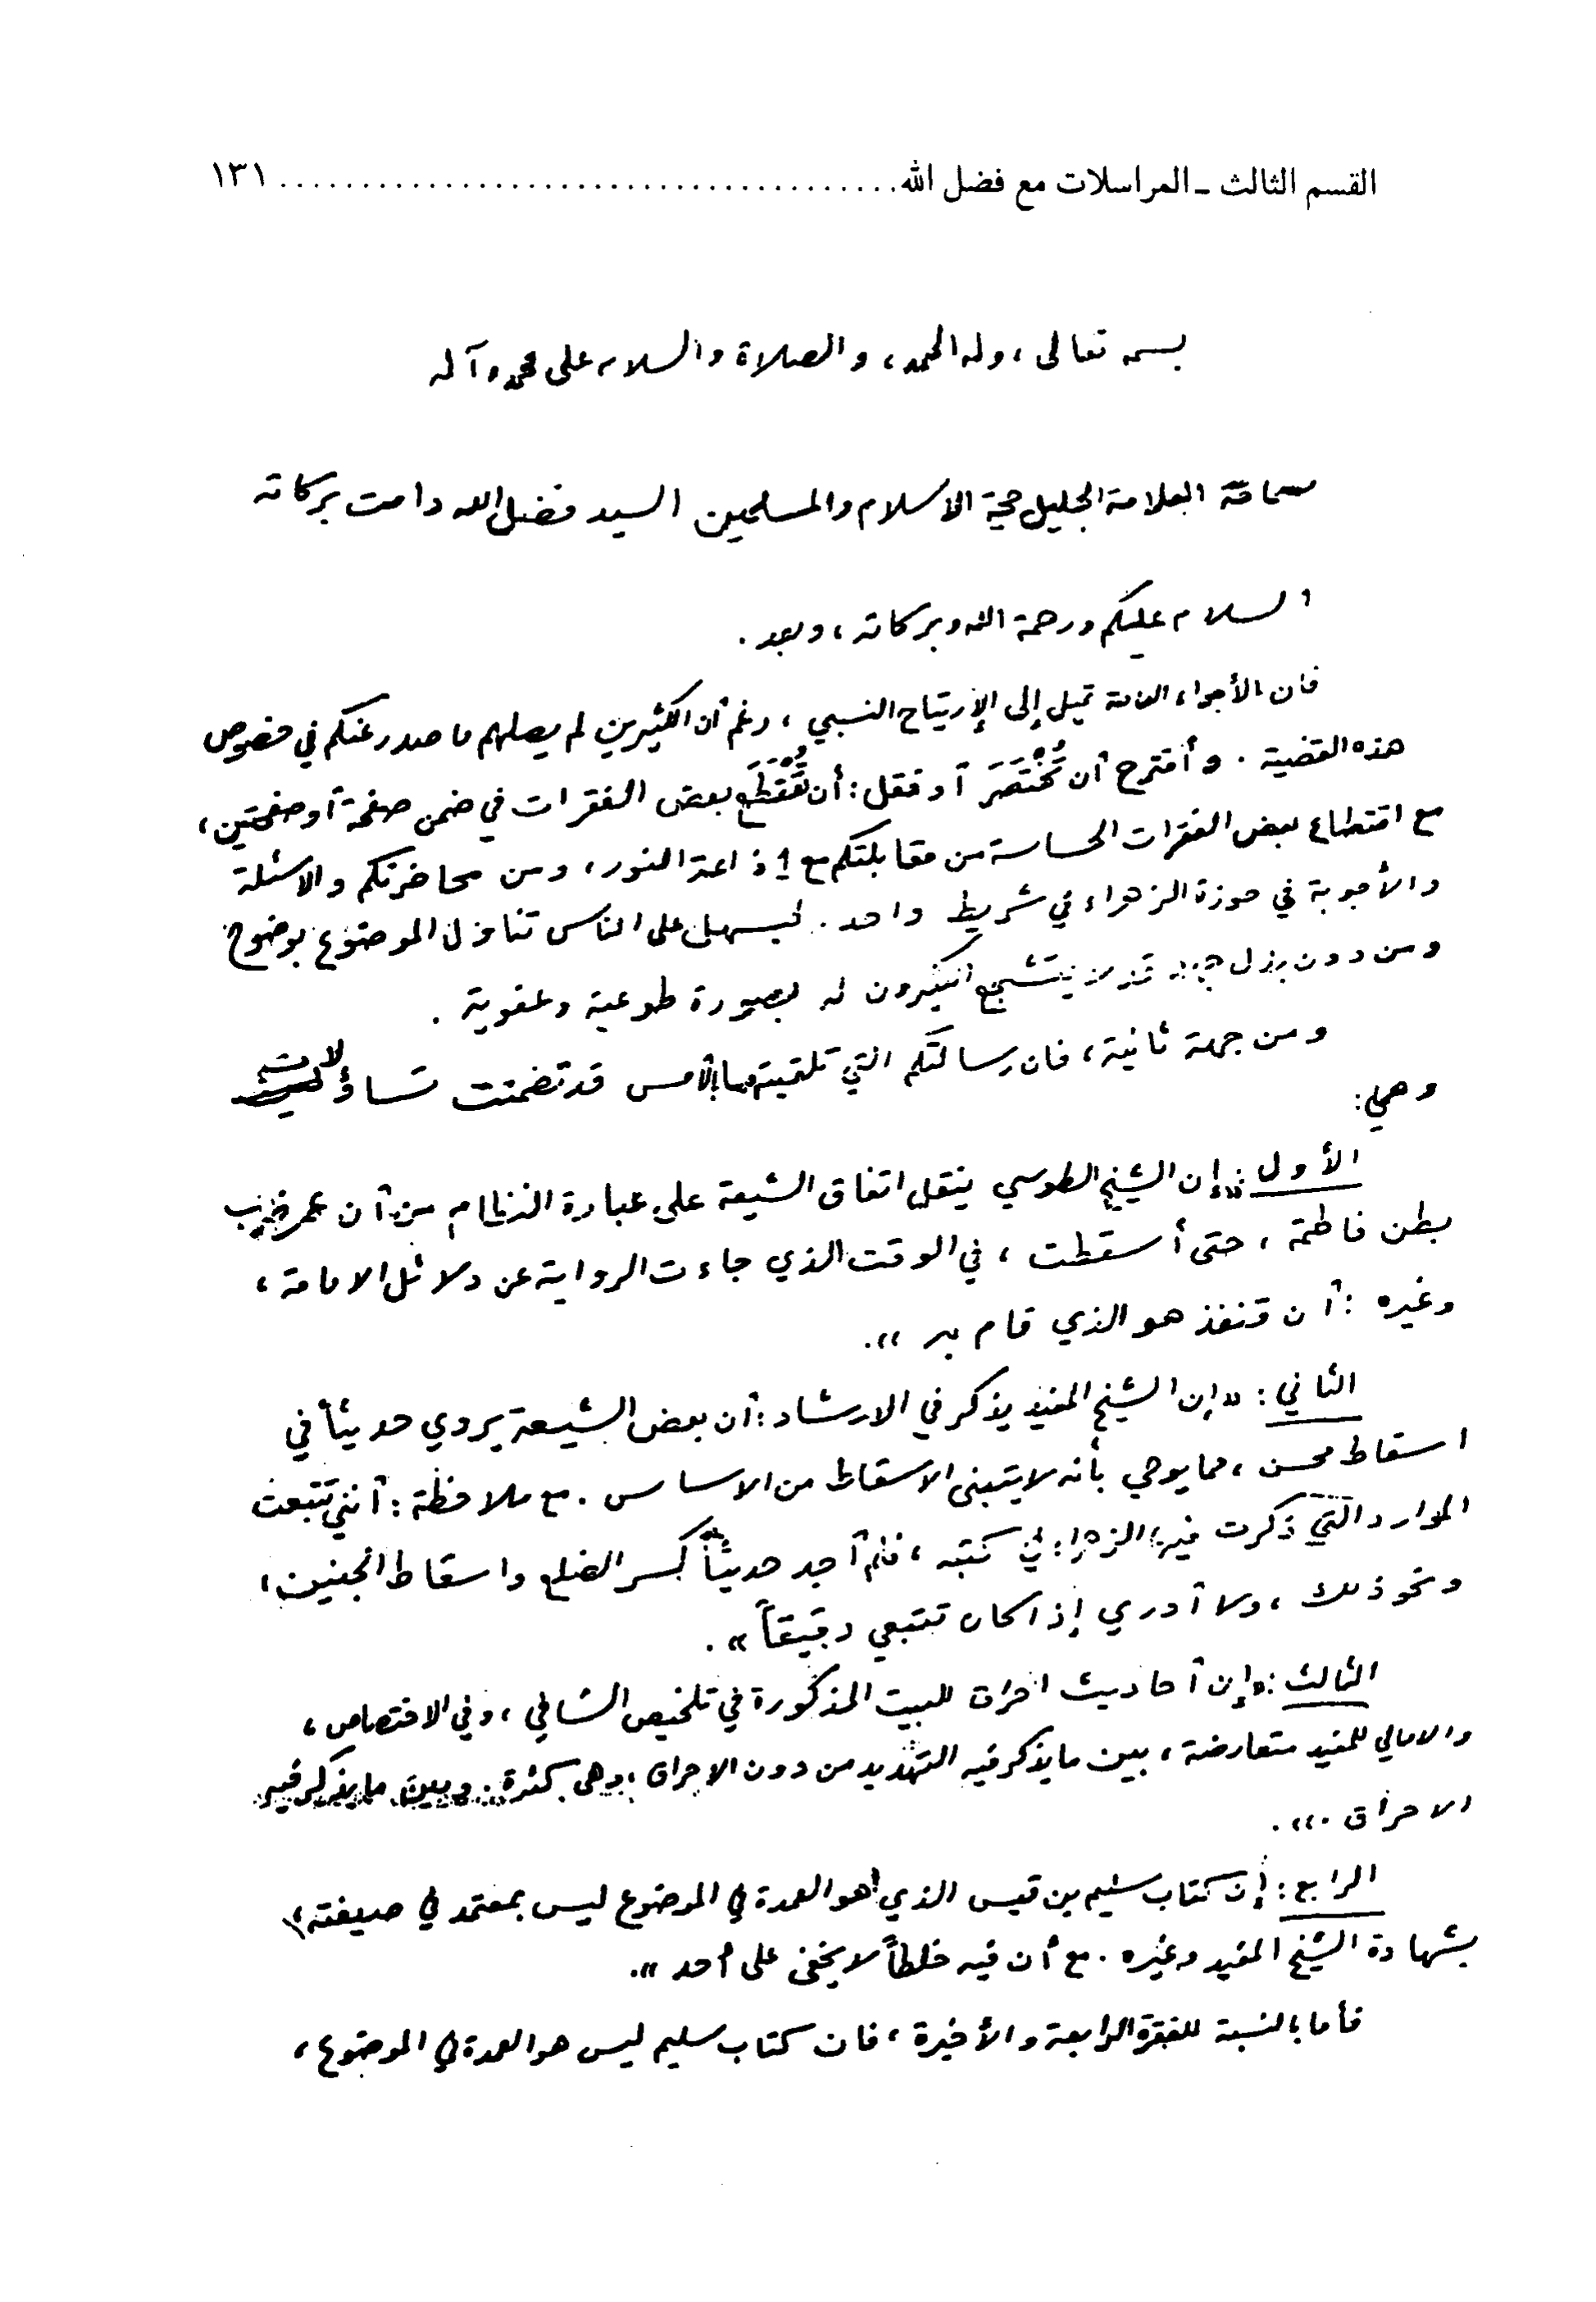 القسم الثالث ـ المراسلات مع فضل الله ...................................... ١٣١
بسمه تعالى ، وله الحمد ، والصلاة والسلام على محمد وآله
سماحة العلامة الجليل حجة الاسلام والمسلمين السيد فضل الله دامت بركاته
السلام عليكم ورحمة الله وبركاته ، وبعد .
فان الأجواء العامة تميل إلى الإرتياح النسبي ، رغم أن الكثيرين لم يصلهم ما صدر عنكم في خصوص
هذه القضية . وأقترح أن تُخْتَصَرَ أو فقل : أن تُقْتَطَع بعض الفقرات في ضمن صفحة أو صفحتين ،
مع اقتطاع بعض الفقرات الحساسة من مقابلتكم مع إذاعة النور ، ومن محاضرتكم والاسئلة
والأجوبة في حوزة الزهراء في شريط واحد . ليسهل على الناس تناول الموضوع بوضوح
ومن دون بذل جهد قد لا يتشجع الكثيرون له بصورة طوعية وعفوية .
ومن جهة ثانية ، فان رسالتكم التي تلقيتها بالأمس قد تضمنت تساؤلات
وهي :
الأول : « إن الشيخ الطوسي ينقل اتفاق الشيعة على عبارة النظام من أن عمر ضرب
بطن فاطمة ، حتى أسقطت ، في الوقت الذي جاءت الرواية عن دلائل الامامة ،
وغيره : أن قنفذ هو الذي قام به » .
الثاني : « إن الشيخ المفيد يذكر في الارشاد : أن بعض الشيعة يروي حديثاً في
اسقاط محسن ، مما يوحي بأنه لا يتبنى الاسقاط من الاساس . مع ملاحظة : أنني تتبعت
الموارد التي ذكرت فيها الزهراء في كتبه ، فلم أجد حديثاً لكسر الضلع واسقاط الجنين ،
ونحو ذلك ، ولا أدري إذا كان تتبعي دقيقاً » .
الثالث : « إن أحاديث احراق البيت المذكورة في تلخيص الشافي ، وفي الاختصاص ،
والامالي للمفيد متعارضة ، بين ما يذكر فيه التهديد من دون الاحراق ، وهي كثرة . وبين ما يذكر فيه
الاحراق .» .
الرابع : إن كتاب سليم بن قيس الذي هو العمدة في الموضوع ليس بمعتمد في صيغته ،
بشهادة الشيخ المفيد وغيره . مع أن فيه خلطاً لا يخفى على أحد » .
فأما بالنسبة للفقرة الرابعة والأخيرة ، فان كتاب سليم ليس هو العمدة في الموضوع ،